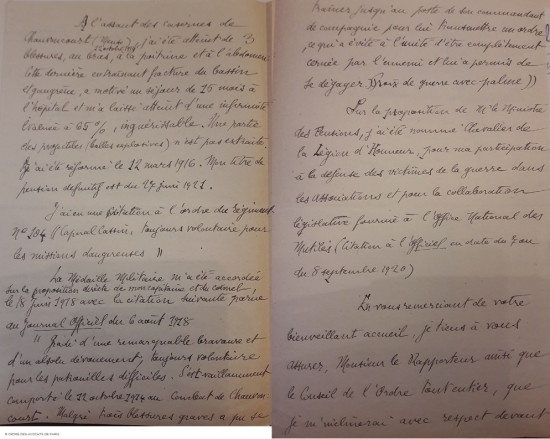 A l'assaut des casernes de
Chauvoncourt (Meuse) j'ai été atteint de 3
blessures, au bras, à la poitrine et à l'abdomen
Cette dernière entraînant fracture du bassin
et gangrène, a motivé un séjour de 15 mois à
l'hôpital et m'a laissé atteint d'une infirmité
évaluée à 65%, inguérissable. Une partie
des projectiles (balles explosives) n'est pas extraite.
J'ai été réformé le 12 mars 1916. Mon titre de
pension définitif est du 27 juin 1921.
J'ai eu une citation à l'ordre du Régiment
No 204 (Caporal Cassin, toujours volontaire pour
les missions dangereuses "
La Médaille Militaire m'a été accordée
sur la proposition directe de mon capitaine et du colonel,
le 18 juin 1918 avec la citation suivante parue
au Journal Officiel du 6 août 1918
" Gradé d'une remarquable bravoure et
d'un absolu dévouement, toujours volontaire
pour les patrouilles difficiles. S'est vaillamment
comporté le 12 octobre 1914 au combat de Chauvon-
court. Malgré trois blessures graves a pu se
traîner jusqu'au poste de son commandant
de compagnie pour lui transmettre un ordre
, ce qui a évité à l'unité d'être complètement
cernée par l'ennemi et lui a permis de
se dégager (Croix de guerre avec palme))
Sur la proposition de Mr le Ministre
des Pensions, j'ai été nommé Chevalier de
la Légion d'Honneur, pour ma participation
à la défense des victimes de la guerre dans
les associations et pour la collaboration
législative fournie à l'Office National des
Mutilés (Citation à l'Officiel en date du
du 8 septembre 1920)
En vous remerciant de votre
bienveillant accueil, je tiens à vous
assurer, Monsieur le Rapporteur ainsi que
le Conseil de l'Ordre tout entier, que
je m'inclinerai avec respect devant
© ORDRE DES AVOCATS DE PARIS